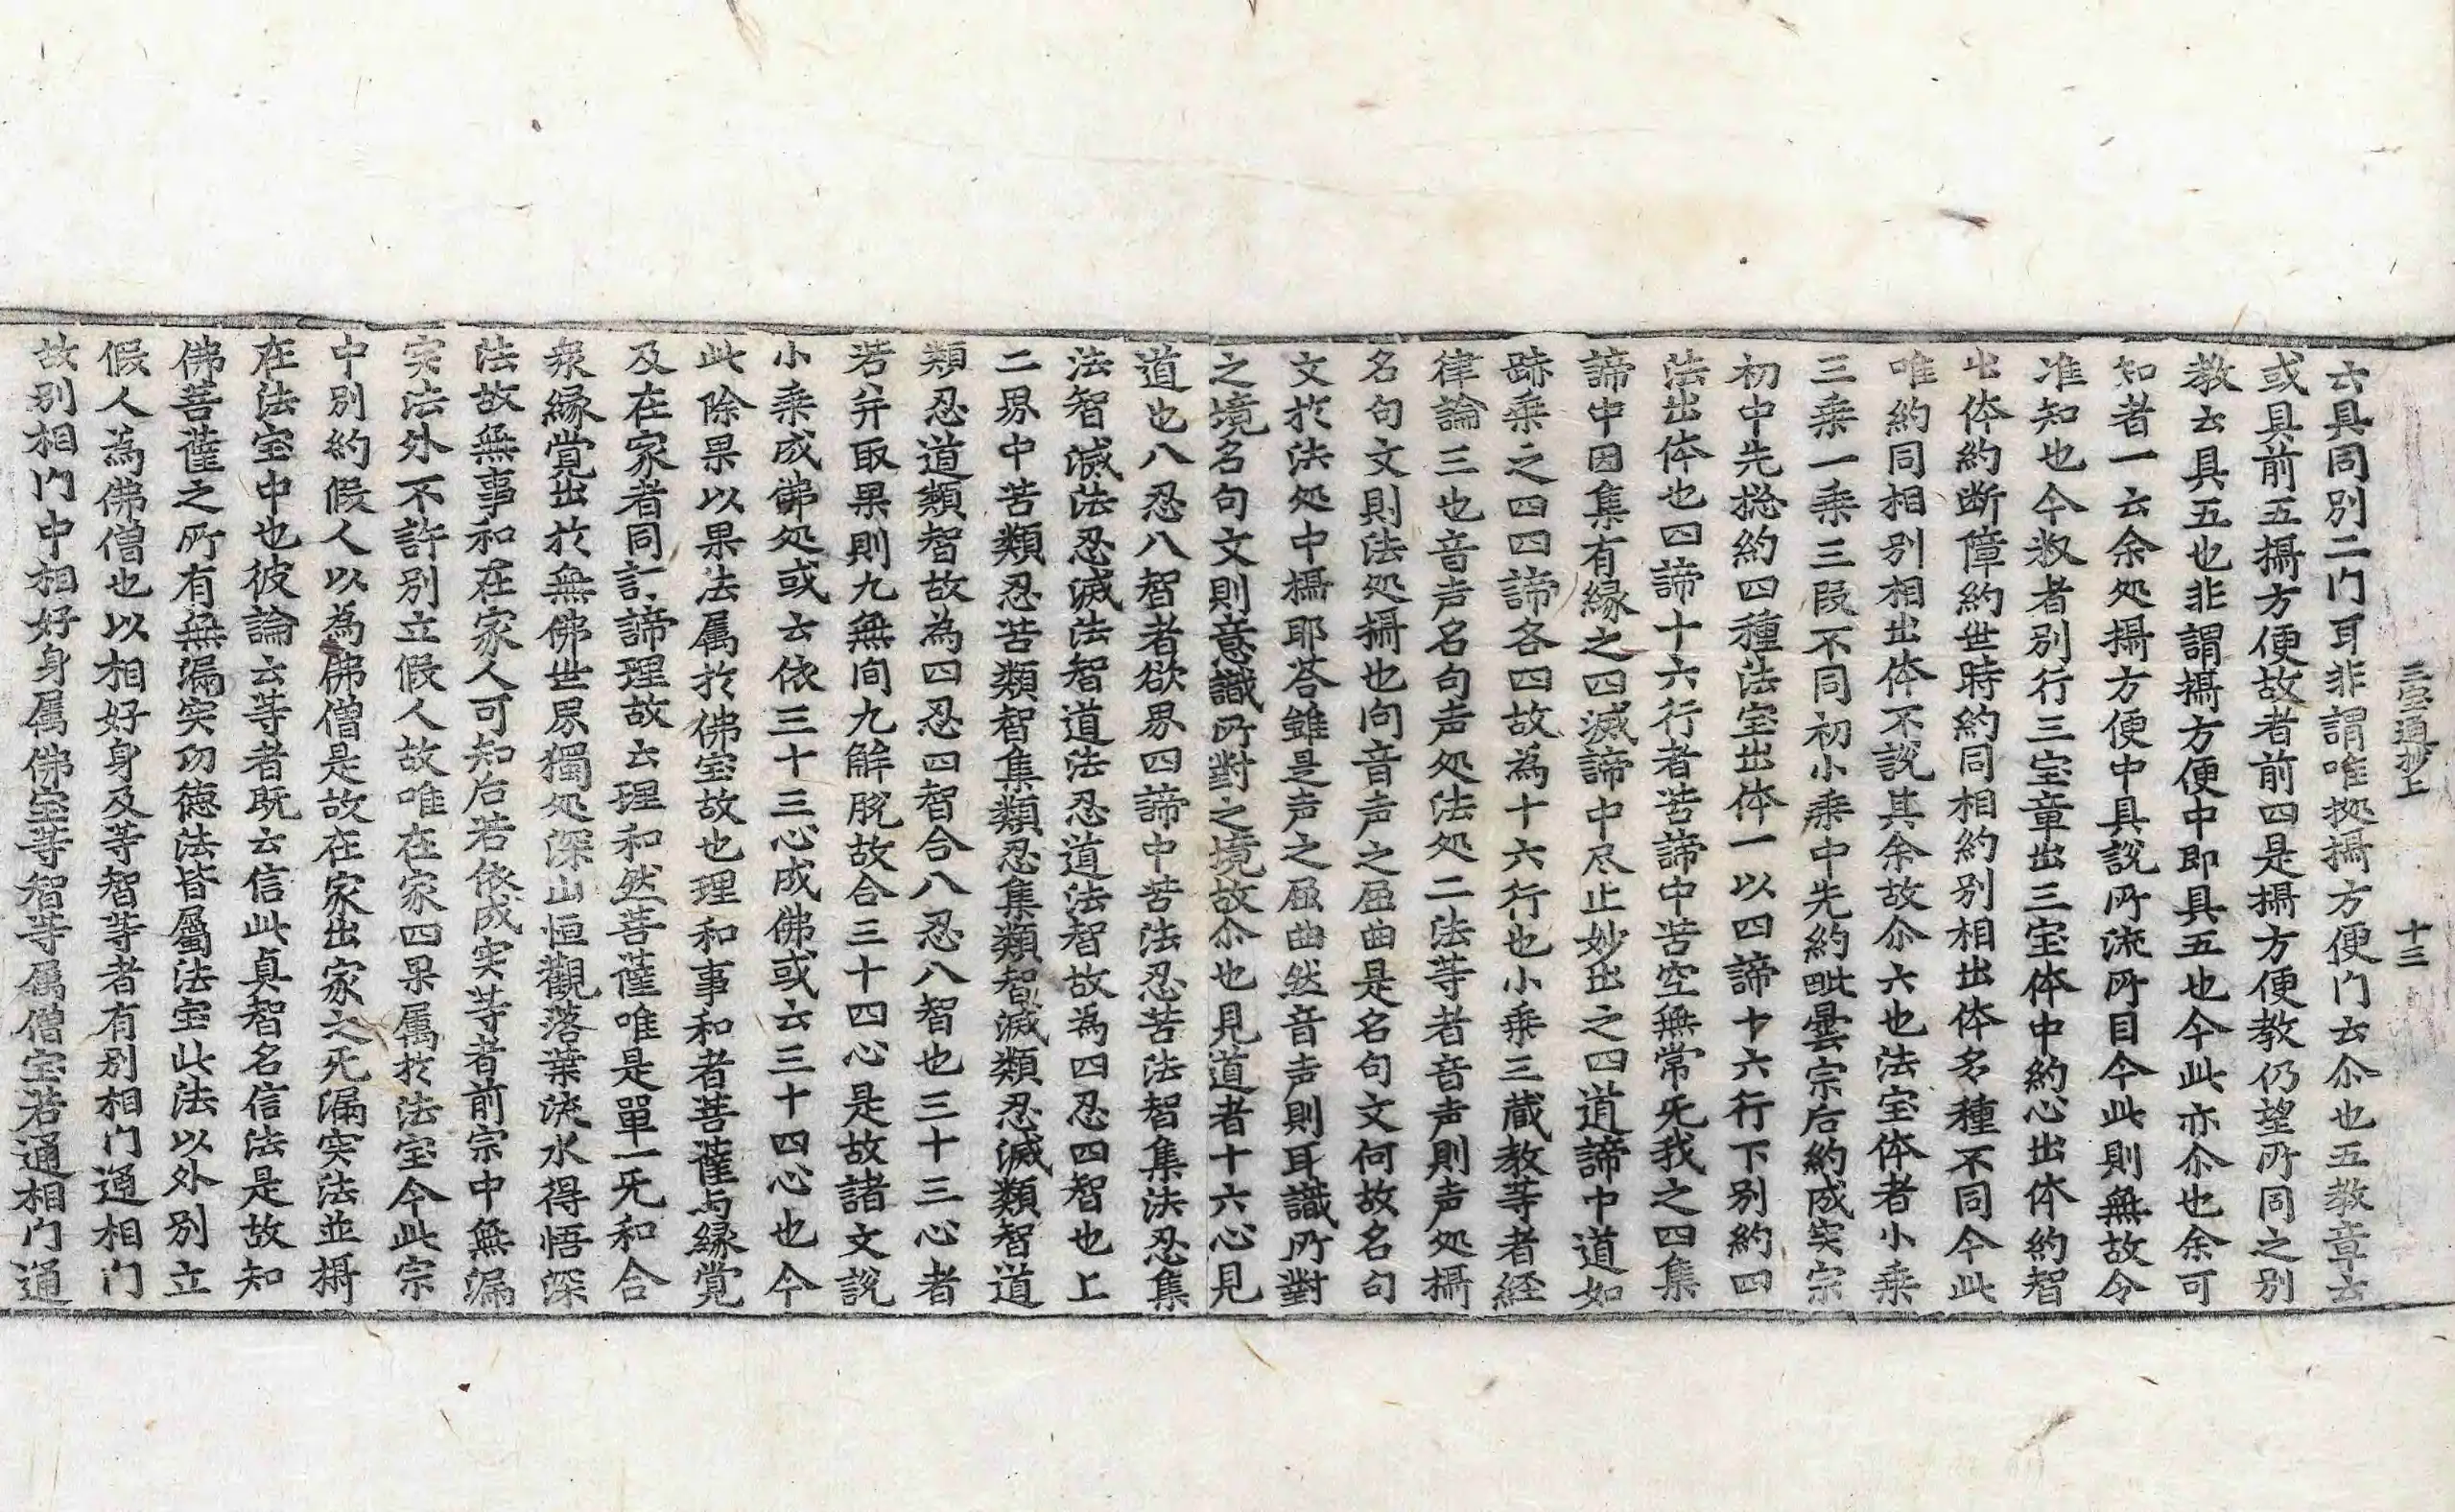 三宝通抄上 十三
云具同別二门耳非謂唯㨿攝方便门云尒也五教章云
或具前五攝方便故者前四是攝方便教仍望所同之別
教云具五也非謂攝方便中即具五也今此亦尒也余可
知者一云余処攝方便中具說所流所目今此則無故今
准知也今叙者別行三宝章出三宝体中約心出体約智
出体約断障約世時約同相約別相出体多種不同今此
唯約同相別相出体不說其余故尒六也法宝体者小乘
三乘一乘三段不同初小乘中先約毗曇宗后約成宊宗
初中先揔約四種法宝出体一以四諦十六行下別約四
法出体也四諦十六行者苦諦中苦空無常旡我之四集
諦中因集有縁之四滅諦中尽止妙出之四道諦中道如
跡乘之四四諦各四故為十六行也小乘三藏教等者経
律論三也音声名句声処法処二法等者音声則声処攝
名句文則法処攝也问音声之屈曲是名句文何故名句
文於法処中攝耶荅雖是声之屈曲然音声則耳識所對
之境名句文則意識所對之境故尒也見道者十六心見
道也八忍八智者欲界四諦中苦法忍苦法智集法忍集
法智滅法忍滅法智道法忍道法智故為四忍四智也上
二界中苦類忍苦類智集類忍集類智滅類忍滅類智道
類忍道類智故為四忍四智合八忍八智也三十三心者
若并取果則九無间九解脫故合三十四心是故諸文說
小乘成佛処或云依三十三心成佛或云三十四心也今
此除果以果法属於佛宝故也理和事和者菩薩与縁覚
及在家者同訂諦理故云理和然菩薩唯是單一旡和合
衆縁覚出於無佛世界獨処深山恒觀落葉流水得悟深
法故無事和在家人可知后若依成宊等者前宗中無漏
宊法外不許別立假人故唯在家四果属於法宝今此宗
中別約假人以為佛僧是故在家出家之旡漏宊法並攝
在法宝中也彼論云等者既云信此貞智名信法是故知
佛菩薩之所有無漏宊功德法皆屬法宝此法以外別立
假人為佛僧也以相好身及等智等者有別相门通相门
故別相门中相好身属佛宝等智等属僧宝若通相门通